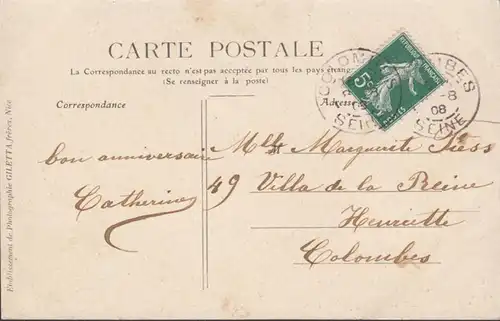 CARTE POSTALE
La Correspondance au recto n'est pas acceptée par tous les pays étran
(Se renseigner à la poste)
Correspondance
Adresse
RÉPUBLIQUE FRANÇAISE
5c
POSTES
COLOMBES
-8
08
SEINE
SEINE
bon anniversaire
Catherine
Mlle Marguerite
49 Villa de la Reine
Henriette
Colombes
Etablissement de Photographie GILETTA, frères, Nice